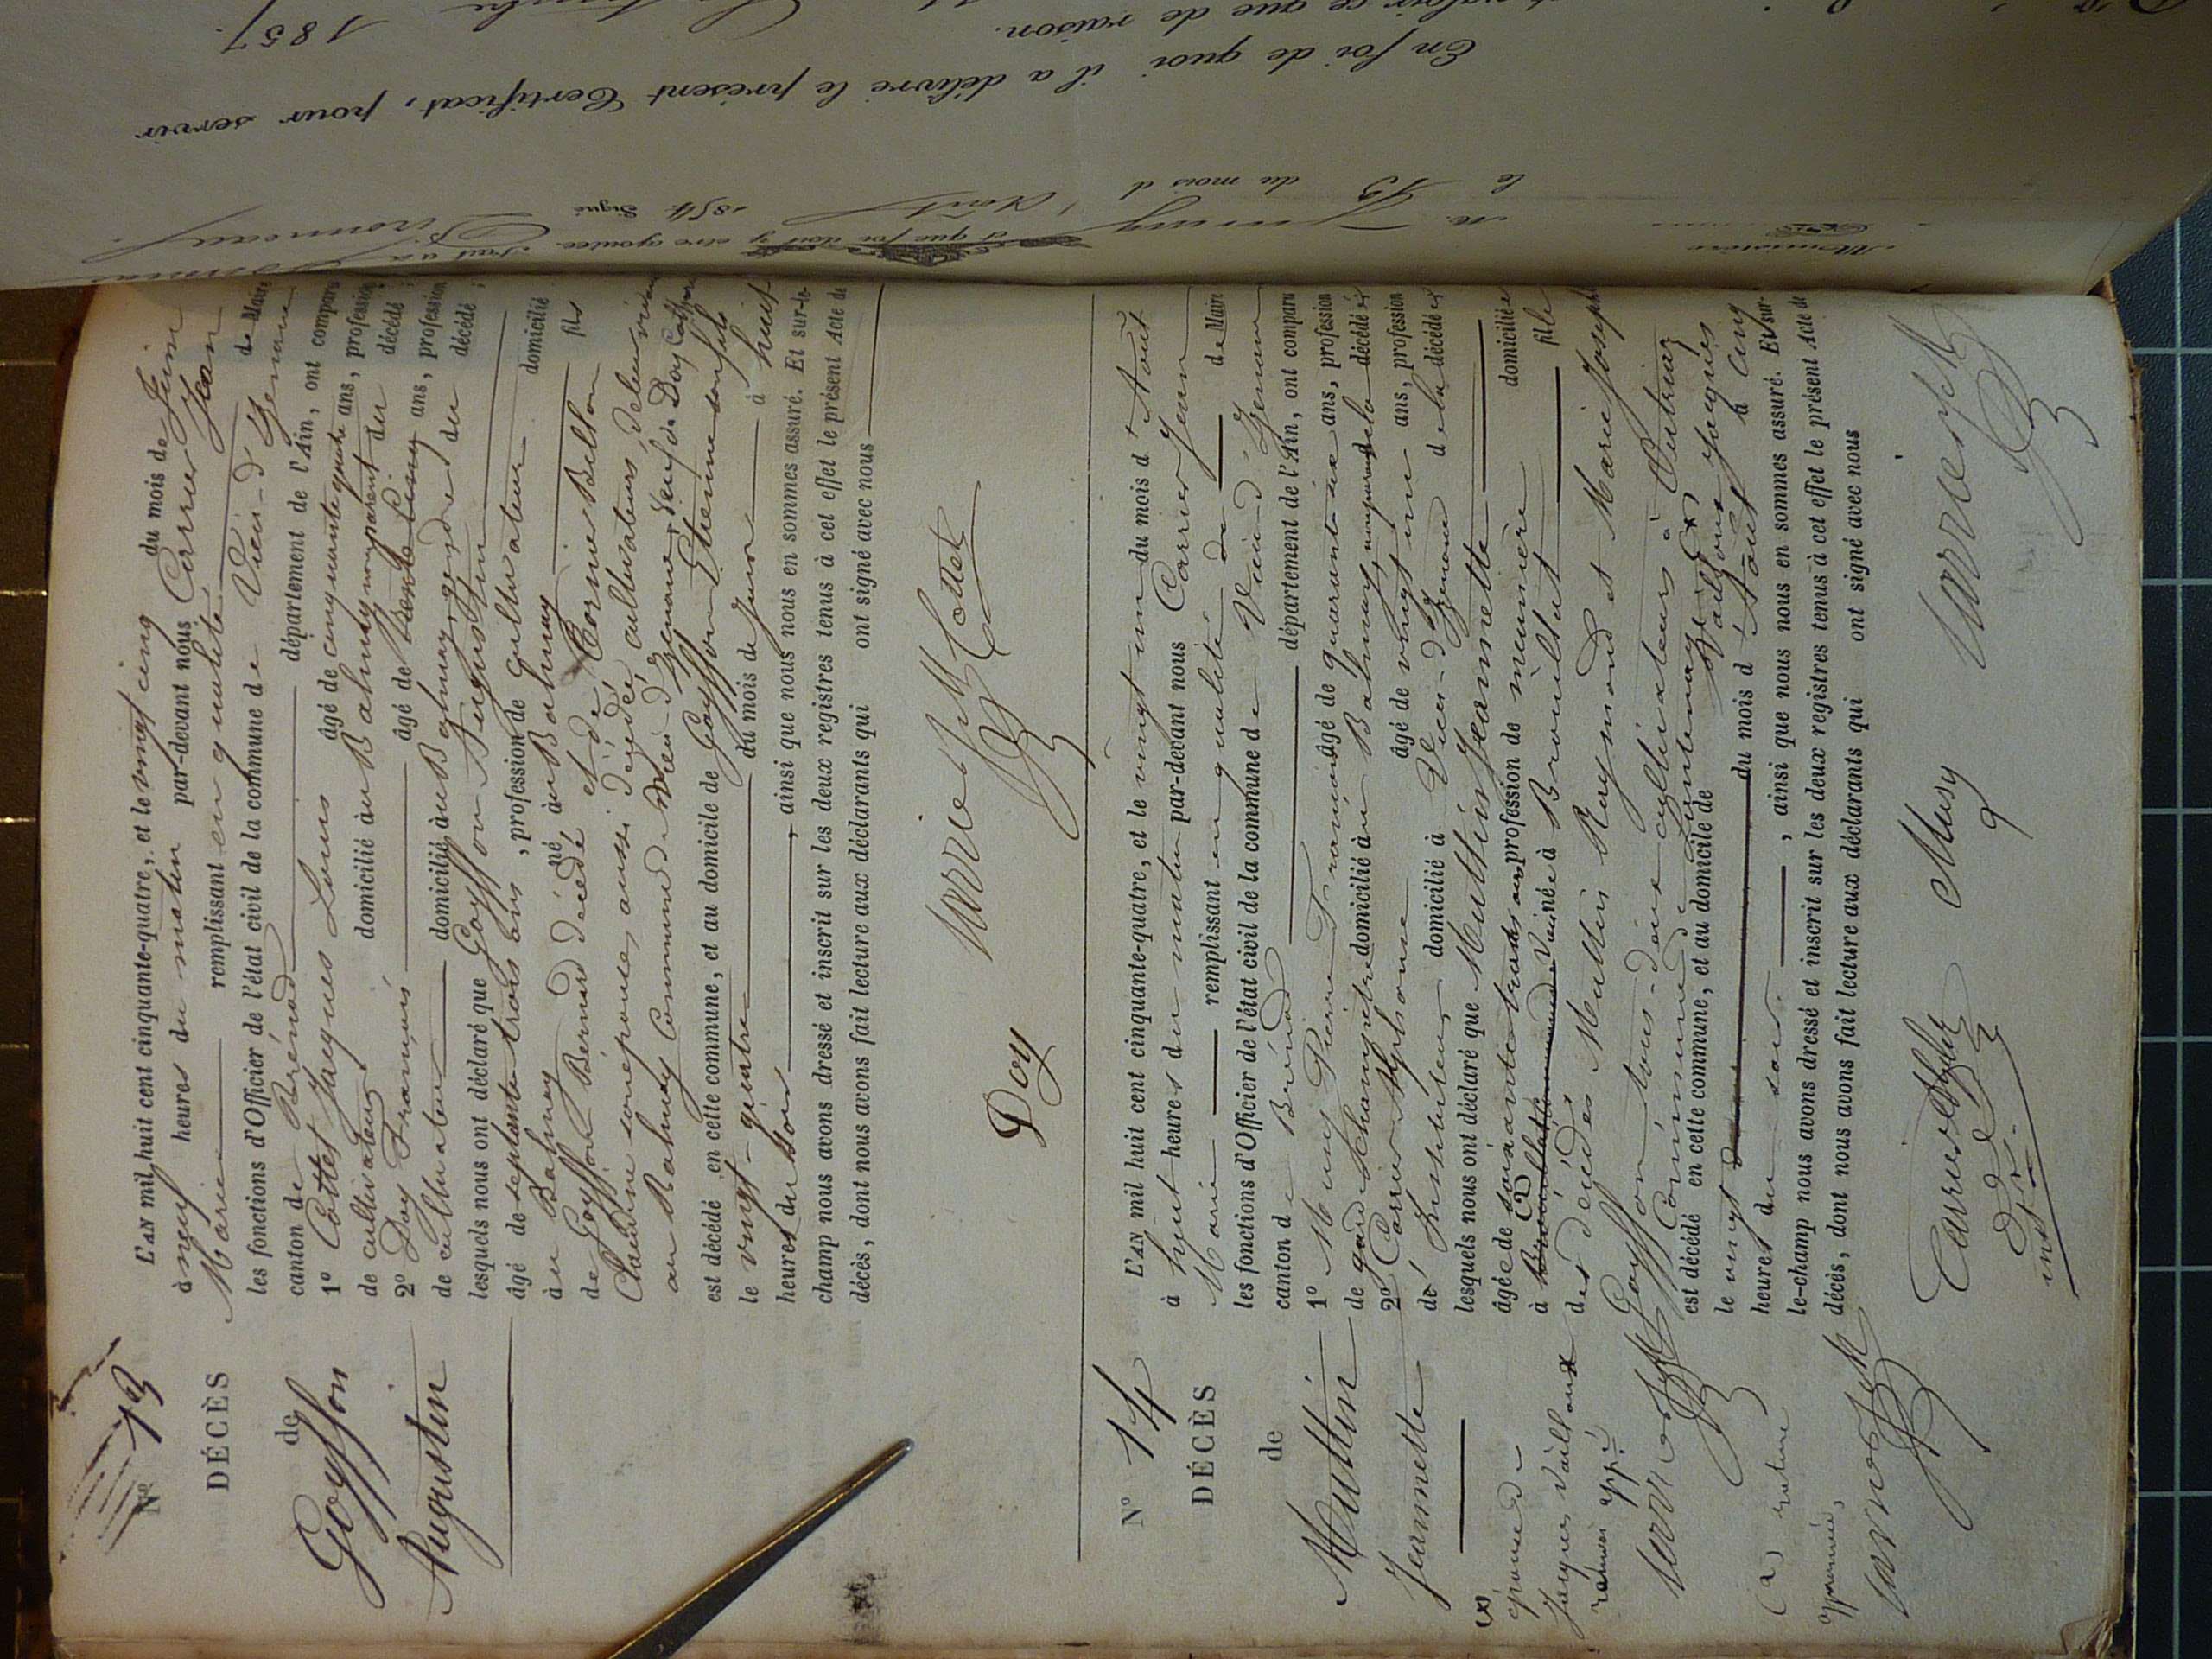 N° 13
DÉCÈS
de
Goyffon
Augustin
L'AN mil huit cent cinquante-quatre, et le vingt cinq du mois de Juin
à neuf heures du matin par-devant nous Carrier Jean
Marie remplissant en qualité de Maire
les fonctions d'Officier de l'état civil de la commune de Vieu-d'Izenave
canton de Brénod département de l'Ain, ont comparu
1° Cottet Jacques Louis âgé de cinquante quatre ans, profession
de cultivateur domicilié au Balmay non parent du décédé ;
2° Doy François âgé de trente cinq ans, profession
de cultivateur domicilié au Balmay, gendre du décédé ;
lesquels nous ont déclaré que Goyffon Augustin
âgé de septante trois ans, profession de cultivateur domicilié
au Balmay né au Balmay fils
de Goyffon Bernard décédé, et de Cornu Bellon
Claudine son épouse, aussi décédée, cultivateurs, de leur vivant
au Balmay Commune de Vieu-d'Izenave, veuf de Doy Cath
est décédé en cette commune, et au domicile de Goyffon Etienne son fils
le vingt-quatre du mois de Juin à huit
heures du soir, ainsi que nous nous en sommes assuré. Et sur-le-
champ nous avons dressé et inscrit sur les deux registres tenus à cet effet le présent Acte de
décès, dont nous avons fait lecture aux déclarants qui ont signé avec nous
Doy Carrier JM Cottet
N° 14
DÉCÈS
de
Muttin
Jeannette
L'AN mil huit cent cinquante-quatre, et le vingt un du mois d'Août
à huit heures du matin par-devant nous Carrier Jean
Marie remplissant en qualité de de Maire
les fonctions d'Officier de l'état civil de la commune de Vieu d'Izenave
canton de Brénod département de l'Ain, ont comparu
1° Musy Pierre François âgé de quarante six ans, profession
de garde champêtre domicilié au Balmay, non parent de la décédée
2° Carrier Alphonse âgé de vingt un ans, profession
de Instituteur domicilié à Vieu-d'Izenave de la décédée
lesquels nous ont déclaré que Muttin Jeannette
âgée de soixante trois ans profession de meunière domiciliée
à née à Brouillat fille
des décédés Muttin Raymond et Marie Joseph
Goyffon tous deux cultivateurs à
Commune de
est décédé en cette commune, et au domicile de Vailloux Jacques
le vingt du mois d'Août à cinq
heures du soir, ainsi que nous nous en sommes assuré. Et sur-
le-champ nous avons dressé et inscrit sur les deux registres tenus à cet effet le présent Acte de
décès, dont nous avons fait lecture aux déclarants qui ont signé avec nous
(x)
épouse de
Jacques Vailloux
Carrier JM
Carrier JM
Carrier Alphse
inst.
Musy
Carrier JM
En foi de quoi il a délivré le présent Certificat, pour servir
et valoir ce que de raison.
1857.
le 13 du mois d
Août 1854. Signé
et que foi doit y être ajoutée. Fait à